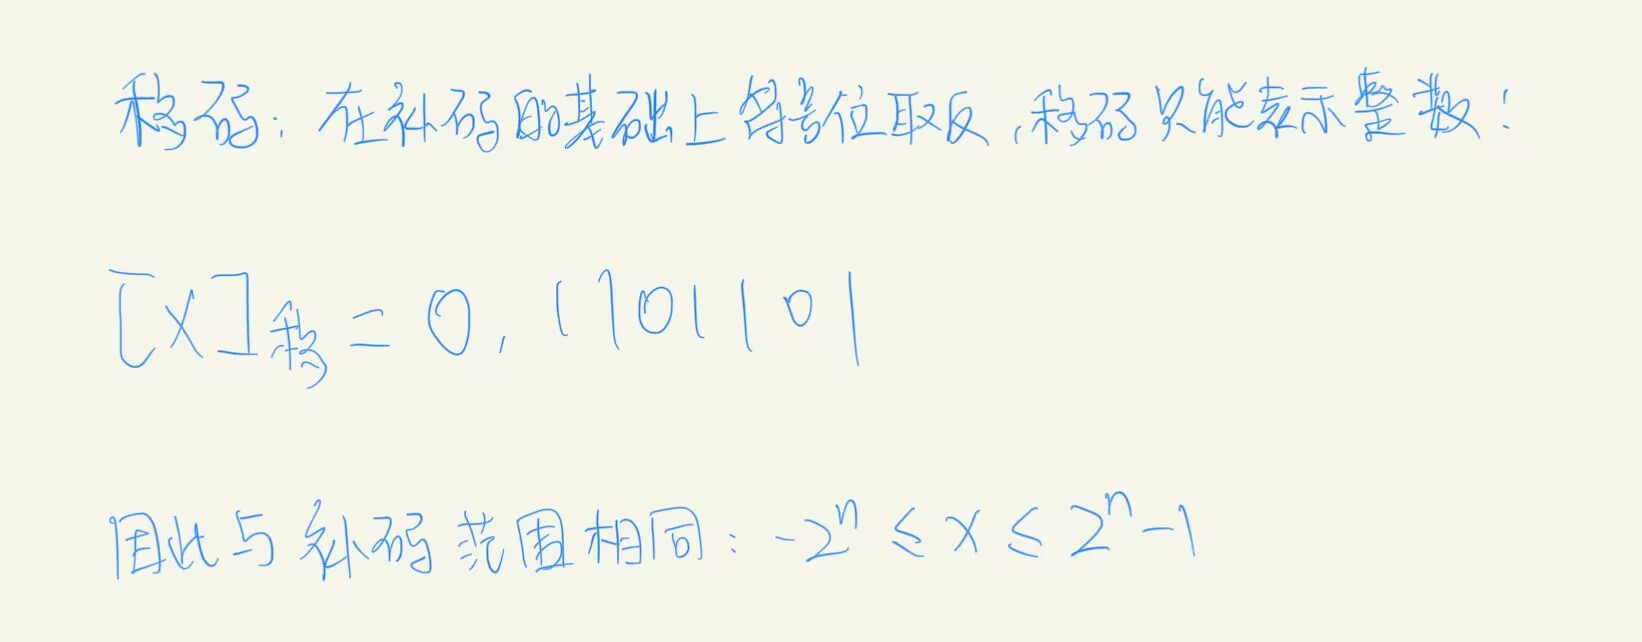 移码：在补码的基础上符号位取反，移码只能表示整数！
[X]移 = 0,11011101
因此与补码范围相同：-2ⁿ ≤ x ≤ 2ⁿ-1